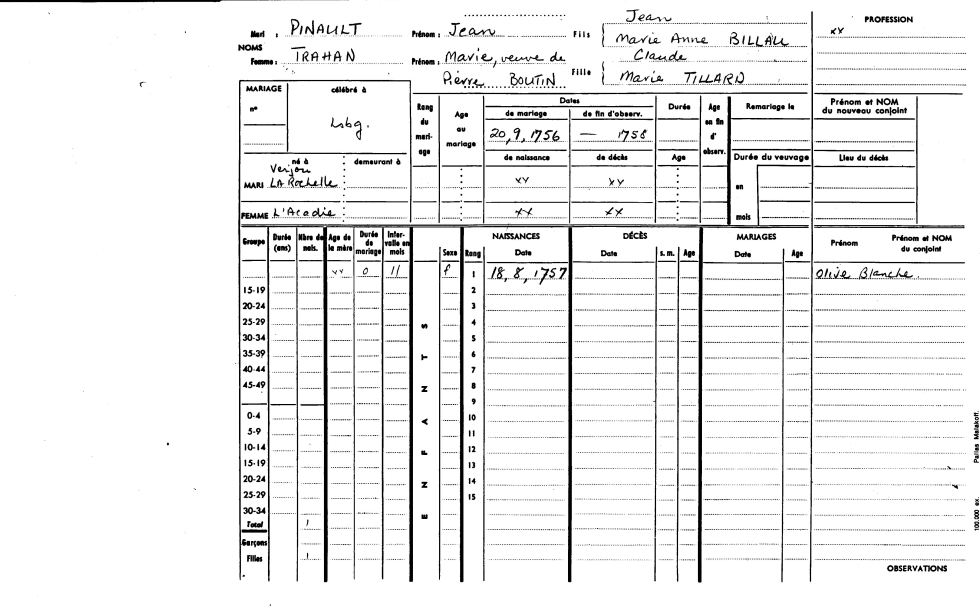 Jean
PROFESSION
Mari : PINAULT Prénom : Jean Fils Marie Anne BILLAU xx
NOMS
Femme : TRAHAN Prénom : Marie, veuve de Claude
Pierre BOUTIN Fille Marie TILLARD
MARIAGE célébré à Rang du mari-age Age au mariage Dates Durée Age en fin d' observ. Remariage le Prénom et NOM du nouveau conjoint
n° de mariage de fin d'observ.
Lsbg. 20, 9, 1756 — 1758
de naissance de décès Age Durée du veuvage Lieu du décès
né à demeurant à
MARI La Rochelle xx xx en
FEMME L'Acadie xx xx mois
Groupe Durée (ans) Nbre de nais. Age de la mère Durée de mariage Inter-valle en mois ENFANTS Sexe Rang NAISSANCES Date DÉCÈS Date s. m. Age MARIAGES Date Age Prénom Prénom et NOM du conjoint
xx 0 11 f 1 18, 8, 1757 Olive Blanche.
15-19 2
20-24 3
25-29 4
30-34 5
35-39 6
40-44 7
45-49 8
9
0-4 10
5-9 11
10-14 12
15-19 13
20-24 14
25-29 15
30-34
Total 1
Garçons
Filles 1
OBSERVATIONS
100.000 ex. Pairies Malakoff.